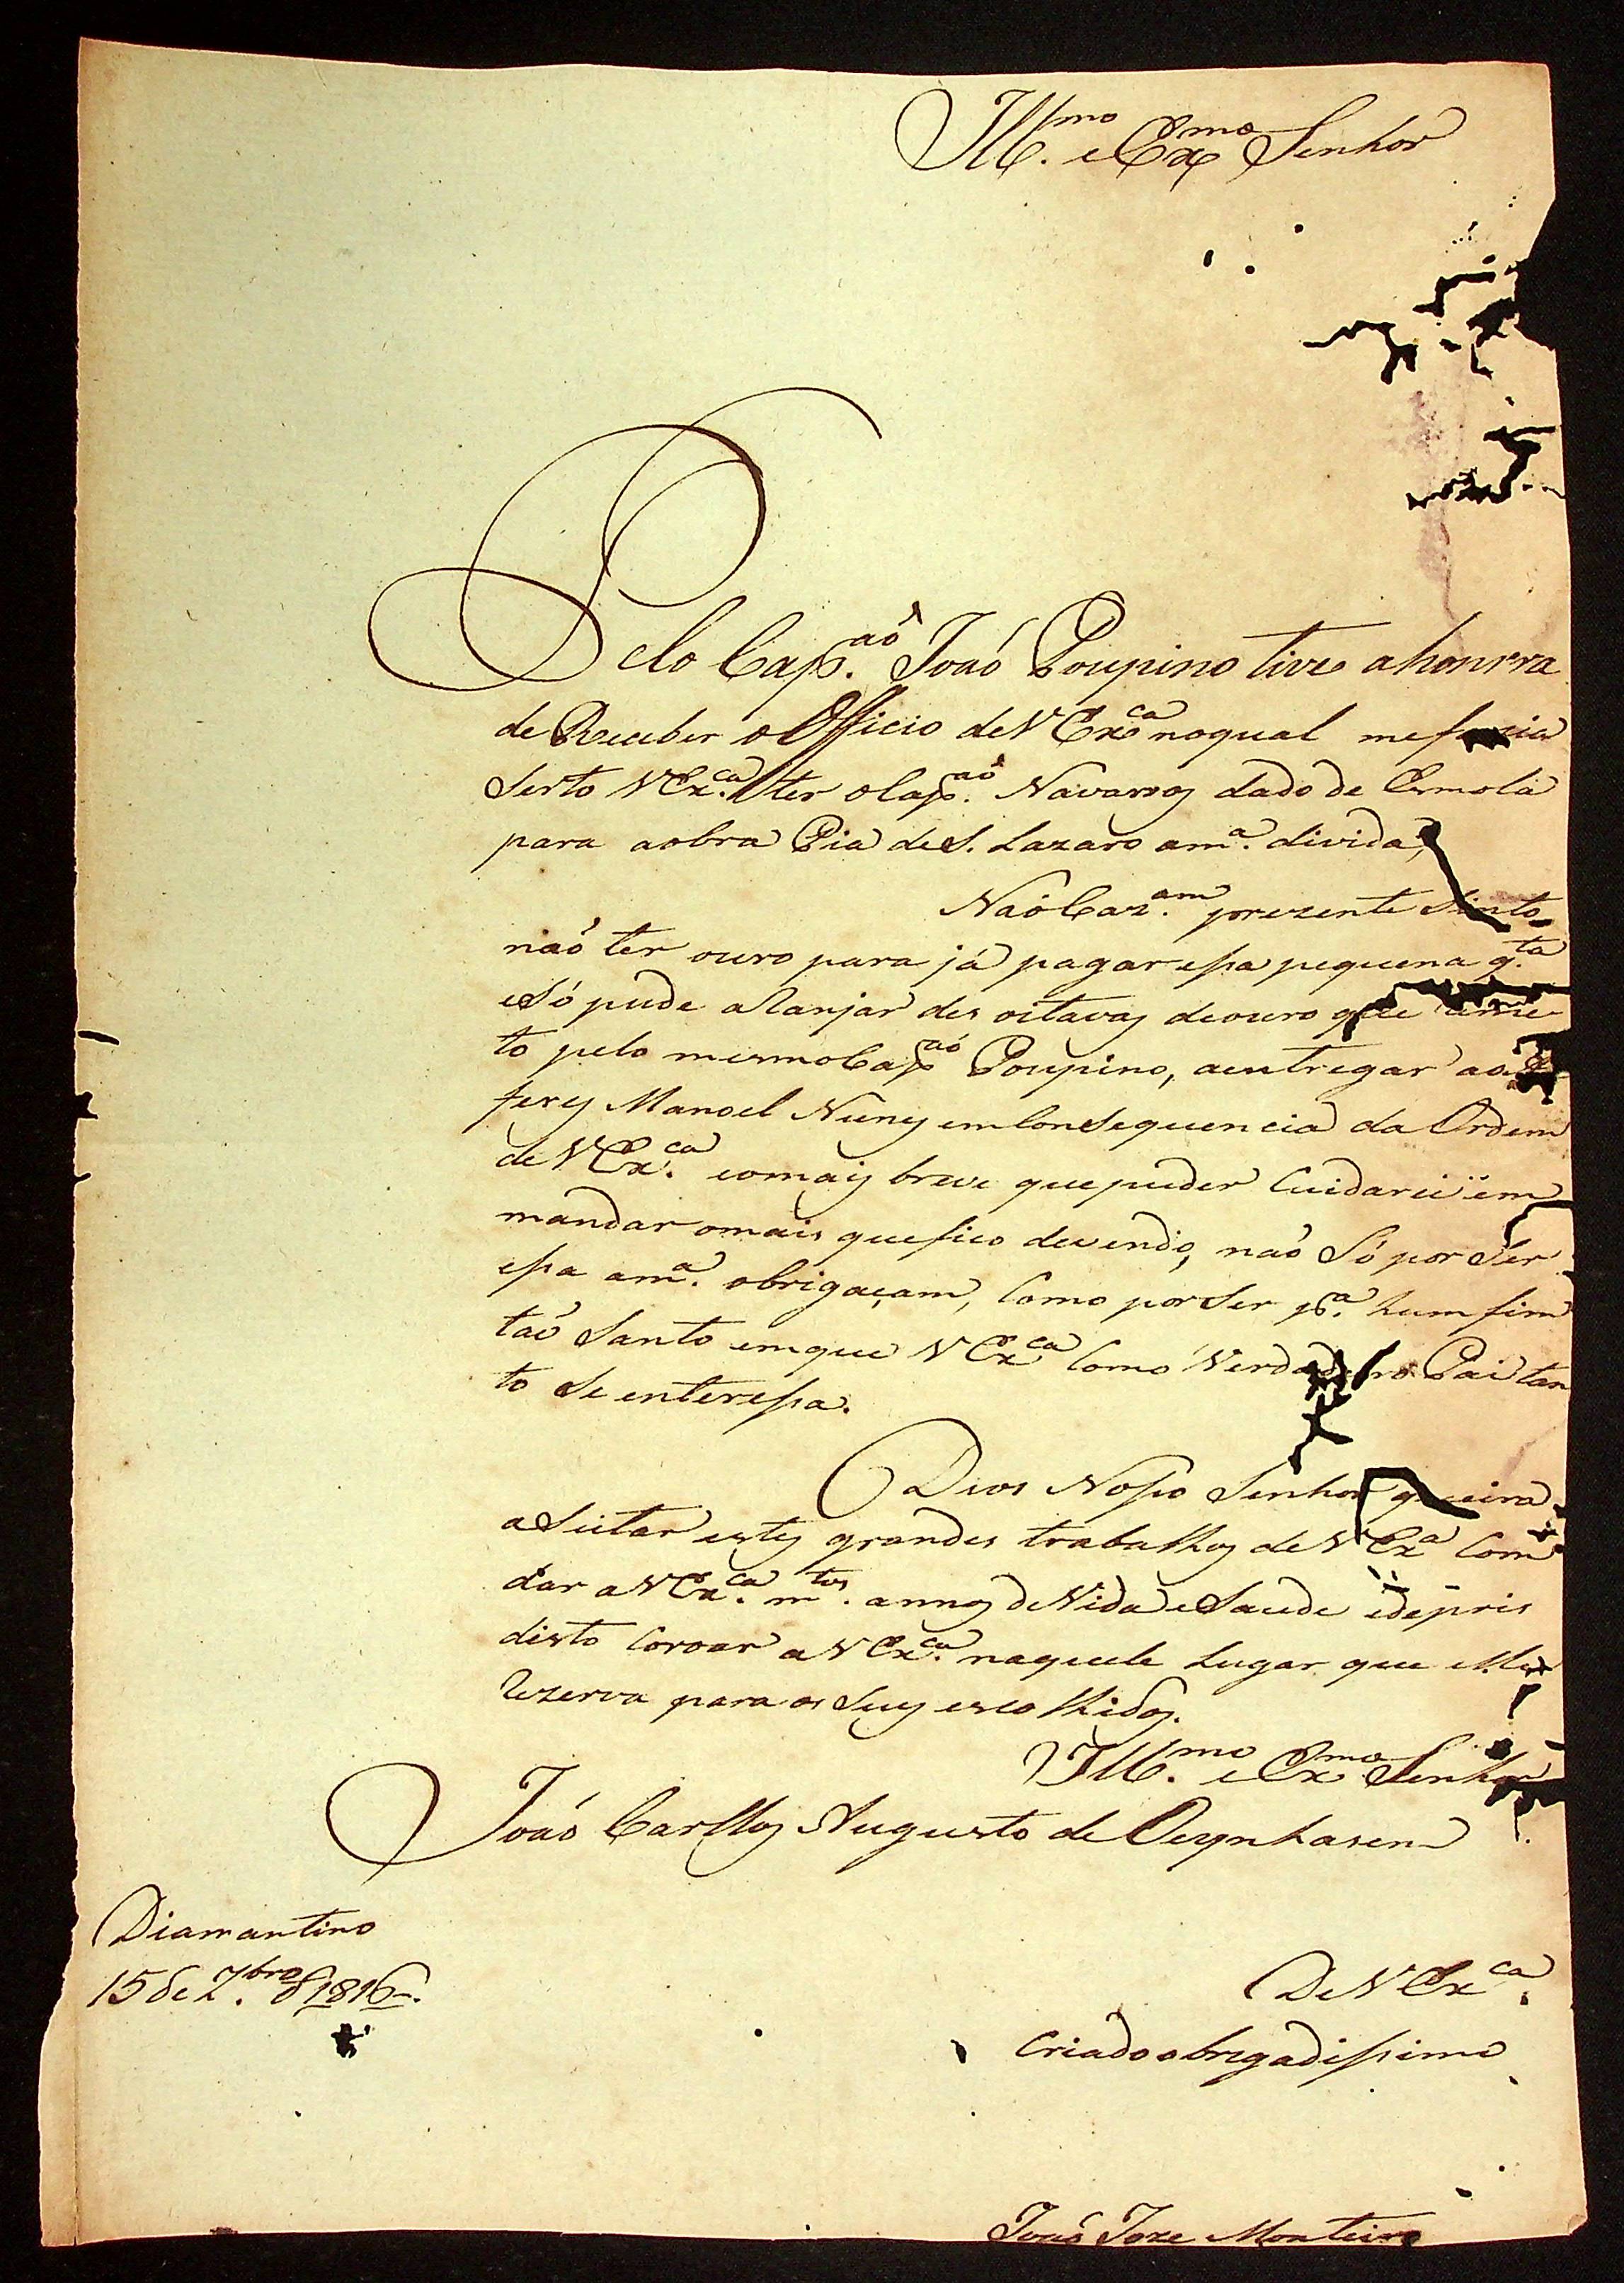 Ill.mo e Ex.mo Senhor
Pelo Cap.aõ Joaõ Poupino tive ahonrra
de Receber o Officio de V Ex.ca noqual me fazia
Serto V Ex.ca ter o Cap.aõ Navarros dado de Esmola
para aobra Pia de S. Lazaro am.a divida,
Na ocaz.am prezente Sinto
naõ ter ouro para já pagar essa pequena q.ta
e Só pude aranjar des oitavas deouro que reme
to pelo mesmo Cap.aõ Poupino, aentregar ao Al
feres Manoel Nunes em Consequencia da Ordem
de V Ex.ca e omais breve que puder Cuidarei em
mandar omais que fico devendo, naõ Só por Ser
essa am.a obrigaçam, Como por Ser p.a hum fim
taõ Santo em que V Ex.ca Como Verdadeiro Pai tan
to Se enteressa.
Deos Nosso Senhor queira
aSeitar estes grandes trabalhos de V Ex.a Com
dar a V Ex.ca m.tos annos de Vida e Saude e depois
disto Coroar a V Ex.ca naquele Lugar que elle
Rezerva para os Seus escolhidos.
Ill.mo e Ex.mo Senhor
Joaõ Carllos Augusto de Oeynhasen
Diamantino
15 de 7.bro d 1816
De V Ex.ca
Criado obrigadissimo
Joaõ Joze Monteiro